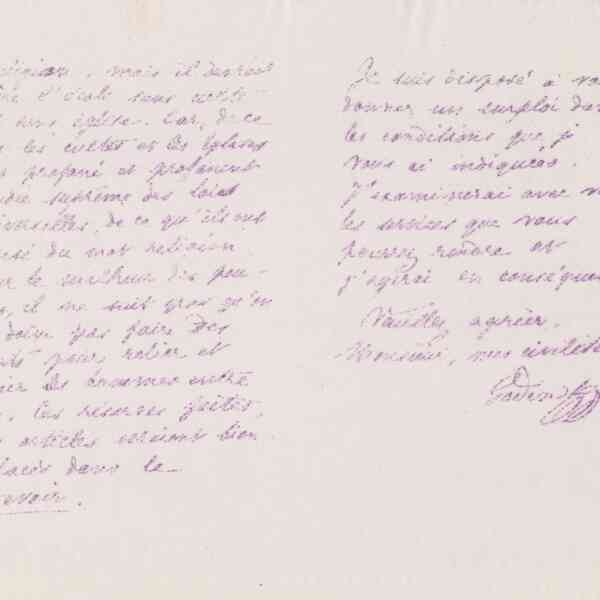 religion, mais il devrait
d'école sans
église. Car, de ce
les cultes et les églises
profané et profanent
suprême des lois
universelles, de ce qu'ils ont
du mot religion
le malheur des peu-
il ne suit pas qu'on
doive pas faire des
pour relier et
les hommes entre
Ces réserves faites,
articles seraient bien
placés dans le
Devoir.
Je suis disposé à vo
donner un emploi da
les conditions que j
vous ai indiquées.
J'examinerai avec v
les services que vous
pourrez rendre et
j'agirai en conséque
Veuillez agréer,
Monsieur, mes civilité
Godin